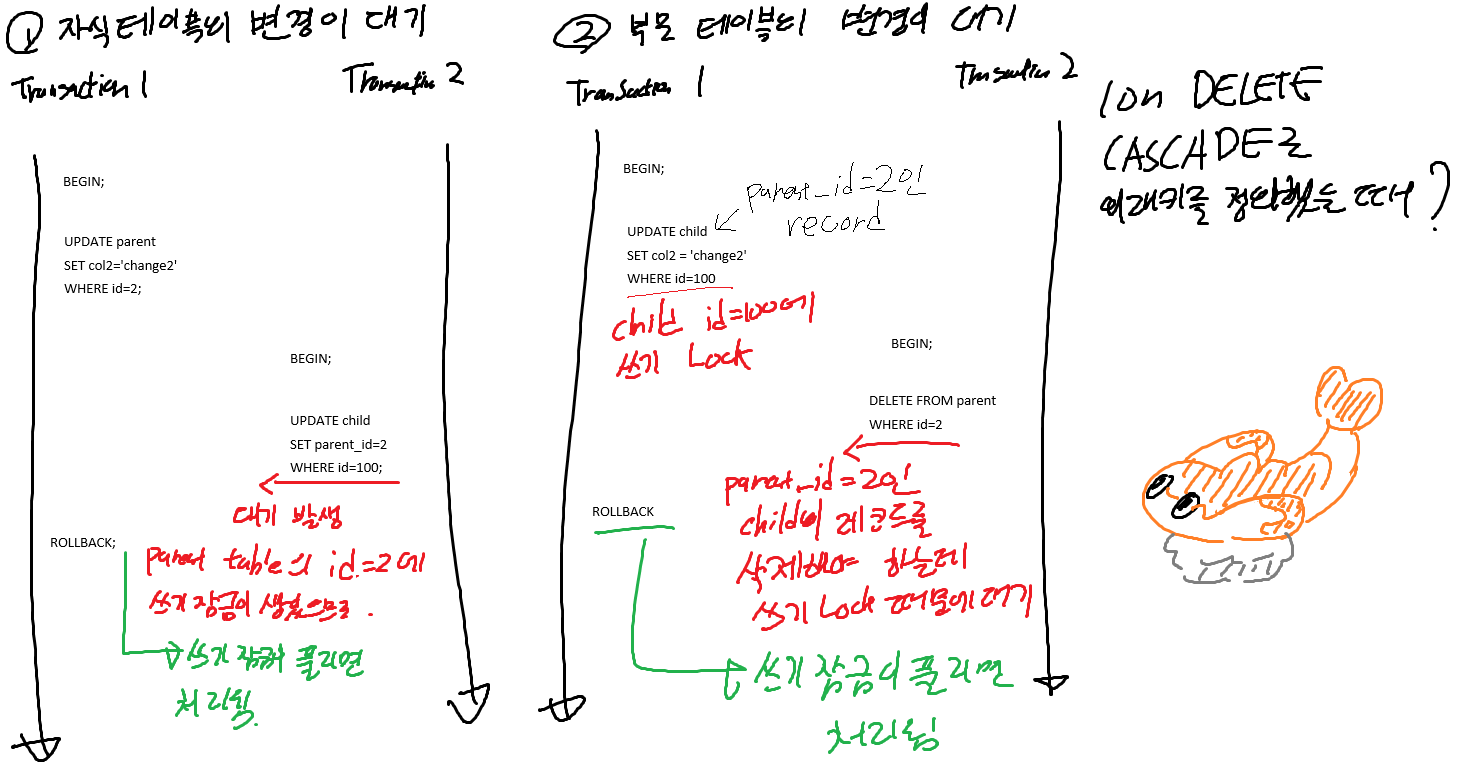 ① 자식테이블의 변경이 대기
Transaction 1
Transaction 2
BEGIN;
UPDATE parent
SET col2='change2'
WHERE id=2;
BEGIN;
UPDATE child
SET parent_id=2
WHERE id=100;
대기 발생
parent table의 id=2에
쓰기 잠금이 생겼으므로.
ROLLBACK;
쓰기 잠금이 풀리면
처리됨.
② 부모 테이블의 변경이 대기
Transaction 1
Transaction 2
BEGIN;
parent_id=2인
record
UPDATE child
SET col2 = 'change2'
WHERE id=100
child id=100에
쓰기 Lock
BEGIN;
DELETE FROM parent
WHERE id=2
parent_id=2인
child의 레코드를
삭제해야 하는데
쓰기 Lock 때문에 대기
ROLLBACK
쓰기 잠금이 풀리면
처리됨
on DELETE
CASCADE로
외래키를 정의했을 때
?